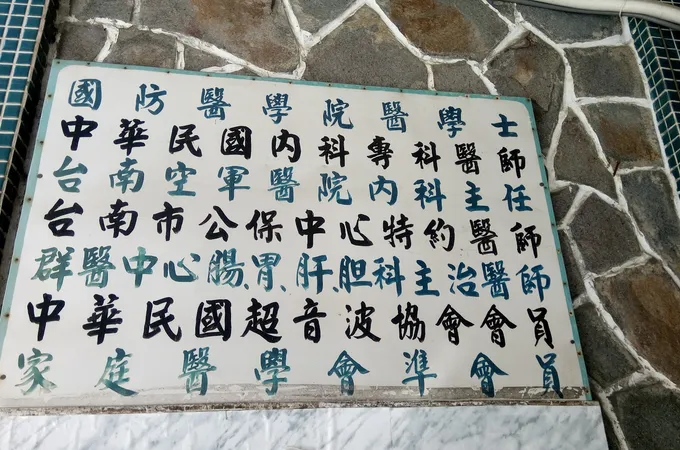 國防醫學院醫學士
中華民國內科專科醫師
台南空軍醫院內科主任
台南市公保中心特約醫師
群醫中心腸、胃、肝、胆科主治醫師
中華民國超音波協會會員
家庭醫學會準會員